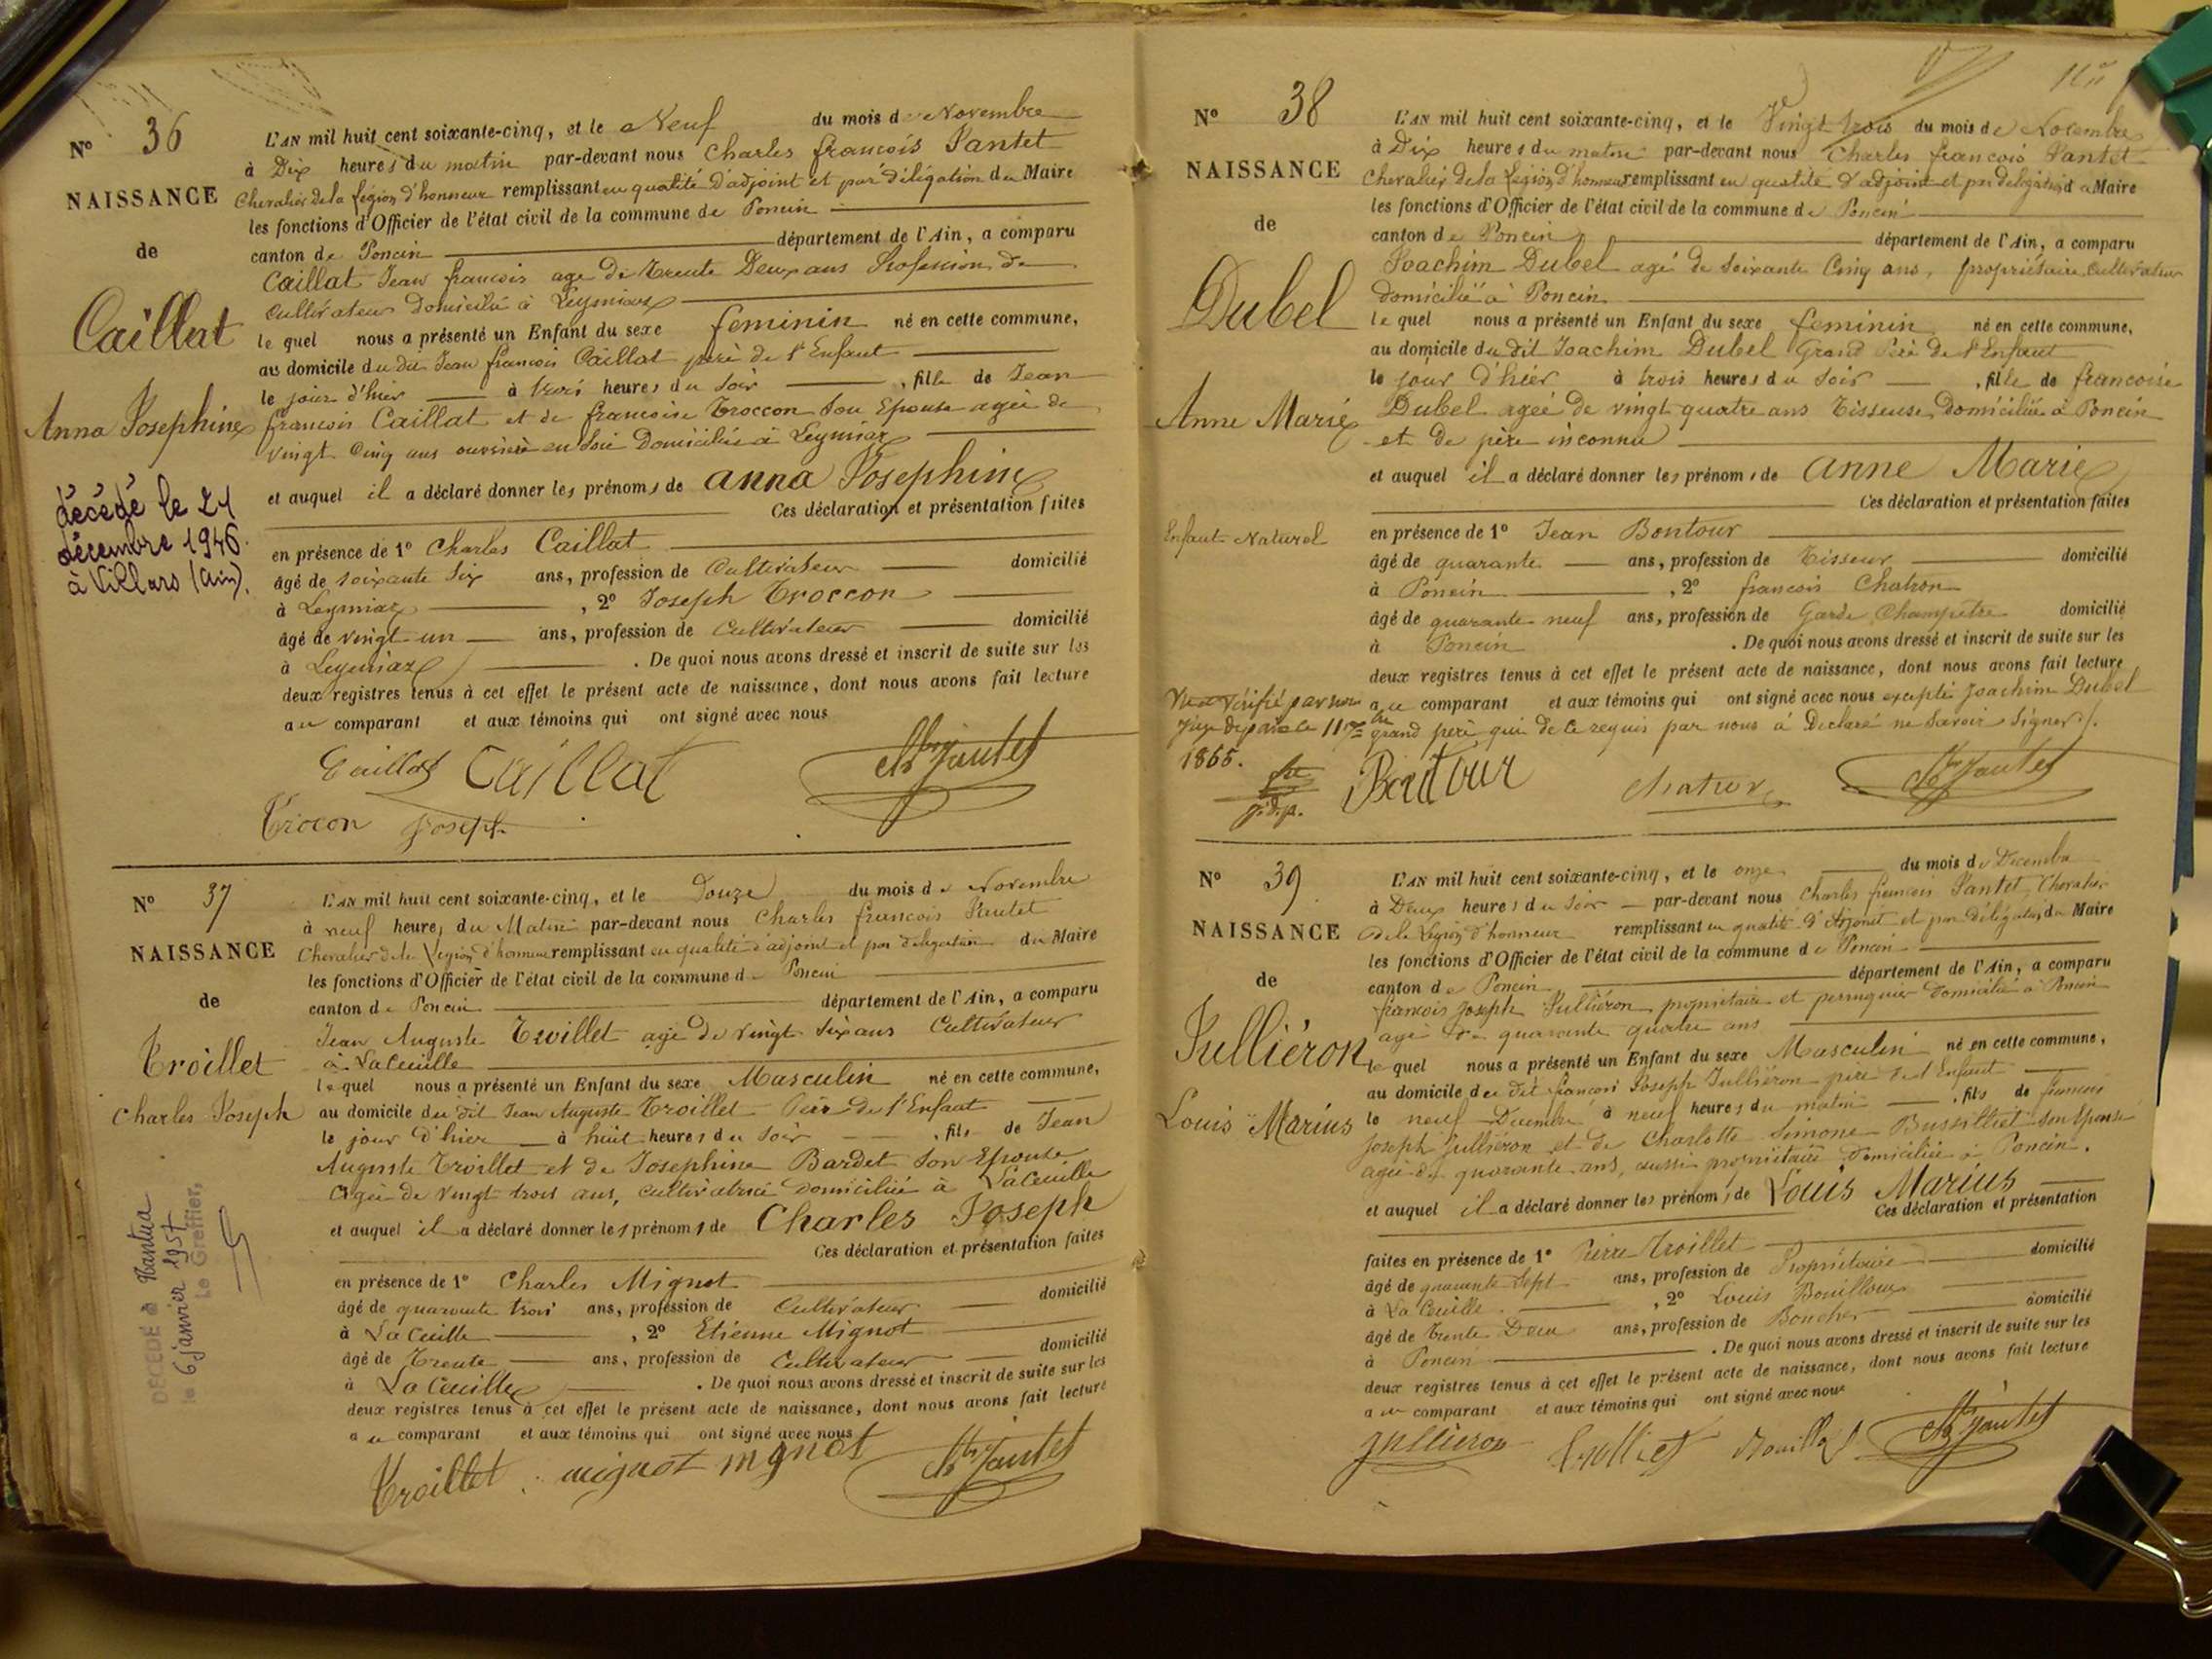 N° 36
NAISSANCE
de
Caillat
Anna Josephine
décédé le 21
décembre 1946
à Villars (Ain).
L'AN mil huit cent soixante-cinq, et le Neuf du mois de Novembre
à Dix heures du matin par-devant nous Charles françois Pantet
Chevalier de la Légion d'honneur remplissant en qualité d'adjoint et par déligation du Maire
les fonctions d'Officier de l'état civil de la commune de Poncin
canton de Poncin département de l'Ain, a comparu
Caillat Jean françois age de Trente Deux ans Profession de
Cultivateur Domicilié à Leymiaz
le quel nous a présenté un Enfant du sexe feminin né en cette commune,
au domicile du dit Jean françois Caillat père de l'Enfant
le jour d'hier à trois heures du soir , fille de Jean
françois Caillat et de françoise Troccon son Epouse agée de
vingt Cinq ans ouvrière en soie Domiciliée à Leymiaz
et auquel il a déclaré donner les prénoms de anna Josephine
Ces déclaration et présentation faites
en présence de 1° Charles Caillat
âgé de soixante six ans, profession de Cultivateur domicilié
à Leymiaz , 2° Joseph Troccon
âgé de vingt un ans, profession de Cultivateur domicilié
à Leymiaz . De quoi nous avons dressé et inscrit de suite sur les
deux registres tenus à cet effet le présent acte de naissance, dont nous avons fait lecture
au comparant et aux témoins qui ont signé avec nous
Caillat Caillat Ch Pantet
Trocon Joseph
N° 37
NAISSANCE
de
Troillet
Charles Joseph
DÉCÉDÉ à Nantua
le 6 janvier 1957
Le Greffier,
L'AN mil huit cent soixante-cinq, et le Douze du mois de Novembre
à neuf heures du Matin par-devant nous Charles françois Pantet
Chevalier de la Légion d'honneur remplissant en qualité d'adjoint et par déligation du Maire
les fonctions d'Officier de l'état civil de la commune de Poncin
canton de Poncin département de l'Ain, a comparu
Jean Auguste Troillet agé de vingt six ans Cultivateur
à La Cueille
le quel nous a présenté un Enfant du sexe Masculin né en cette commune,
au domicile du dit Jean Auguste Troillet Père de l'Enfant
le jour d'hier à huit heures du soir , fils de Jean
Auguste Troillet et de Josephine Bardet son Epouse
agée de vingt trois ans, cultivatrice domiciliée à La Cueille
et auquel il a déclaré donner les prénoms de Charles Joseph
Ces déclaration et présentation faites
en présence de 1° Charles Mignot
âgé de quarante trois ans, profession de Cultivateur domicilié
à La Cueille , 2° Etienne Mignot
âgé de Trente ans, profession de Cultivateur domicilié
à La Cueille . De quoi nous avons dressé et inscrit de suite sur les
deux registres tenus à cet effet le présent acte de naissance, dont nous avons fait lecture
au comparant et aux témoins qui ont signé avec nous
Troillet mignot mignot Ch Pantet
N° 38
NAISSANCE
de
Dubel
Anne Marie
Enfant Naturel
1865.
j.d.p.
L'AN mil huit cent soixante-cinq, et le Vingt trois du mois de Novembre
à Dix heures du matin par-devant nous Charles françois Pantet
Chevalier de la Légion d'honneur remplissant en qualité d'adjoint et par déligation du Maire
les fonctions d'Officier de l'état civil de la commune de Poncin
canton de Poncin département de l'Ain, a comparu
Joachim Dubel agé de soixante Cinq ans, propriétaire Cultivateur
domicilié à Poncin
le quel nous a présenté un Enfant du sexe feminin né en cette commune,
au domicile du dit Joachim Dubel Grand Père de l'Enfant
le jour d'hier à trois heures du soir , fille de françoise
Dubel agée de vingt quatre ans Tisseuse Domiciliée à Poncin
et de père inconnu
et auquel il a déclaré donner les prénoms de anne Marie
Ces déclaration et présentation faites
en présence de 1° Jean Bontour
âgé de quarante ans, profession de Tisseur domicilié
à Poncin , 2° françois Chatron
âgé de quarante neuf ans, profession de Garde Champêtre domicilié
à Poncin . De quoi nous avons dressé et inscrit de suite sur les
deux registres tenus à cet effet le présent acte de naissance, dont nous avons fait lecture
au comparant et aux témoins qui ont signé avec nous excepté Joachim Dubel
grand père qui de ce requis par nous à Declaré ne savoir signer.
Bontour Chatron Ch Pantet
N° 39
NAISSANCE
de
Julliéron
Louis Marius
L'AN mil huit cent soixante-cinq, et le onze du mois de Decembre
à Deux heures du soir par-devant nous Charles françois Pantet, Chevalier
de la Légion d'honneur remplissant en qualité d'Adjoint et par déligation du Maire
les fonctions d'Officier de l'état civil de la commune de Poncin
canton de Poncin département de l'Ain, a comparu
françois Joseph Julliéron propriétaire et perruquier domicilié à Poncin
agé de quarante quatre ans
le quel nous a présenté un Enfant du sexe Masculin né en cette commune,
au domicile du dit françois Joseph Julliéron père de l'Enfant
le neuf Decembre à neuf heures du matin , fils de françois
Joseph Julliéron et de Charlotte Simone Bussilliet son Epouse
agée de quarante ans, aussi propriétaire domiciliée à Poncin.
et auquel il a déclaré donner les prénoms de Louis Marius
Ces déclaration et présentation
faites en présence de 1° Pierre Troillet
âgé de quarante sept ans, profession de Propriétaire domicilié
à La Cueille , 2° Louis Bouilloux
âgé de Trente Deux ans, profession de Boucher domicilié
à Poncin . De quoi nous avons dressé et inscrit de suite sur les
deux registres tenus à cet effet le présent acte de naissance, dont nous avons fait lecture
au comparant et aux témoins qui ont signé avec nous
Julliéron Trolliet Ch Pantet